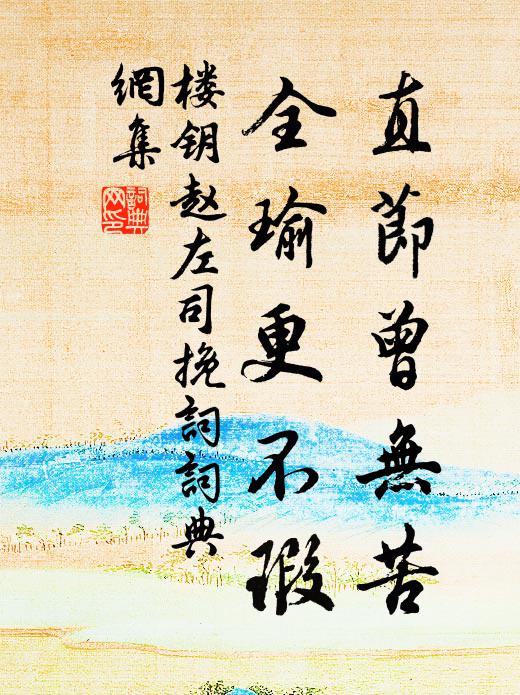 直莭曾無苦
全瑜更不瑕
楼钥赵左司挽詞詞典
網集
詞典
网印